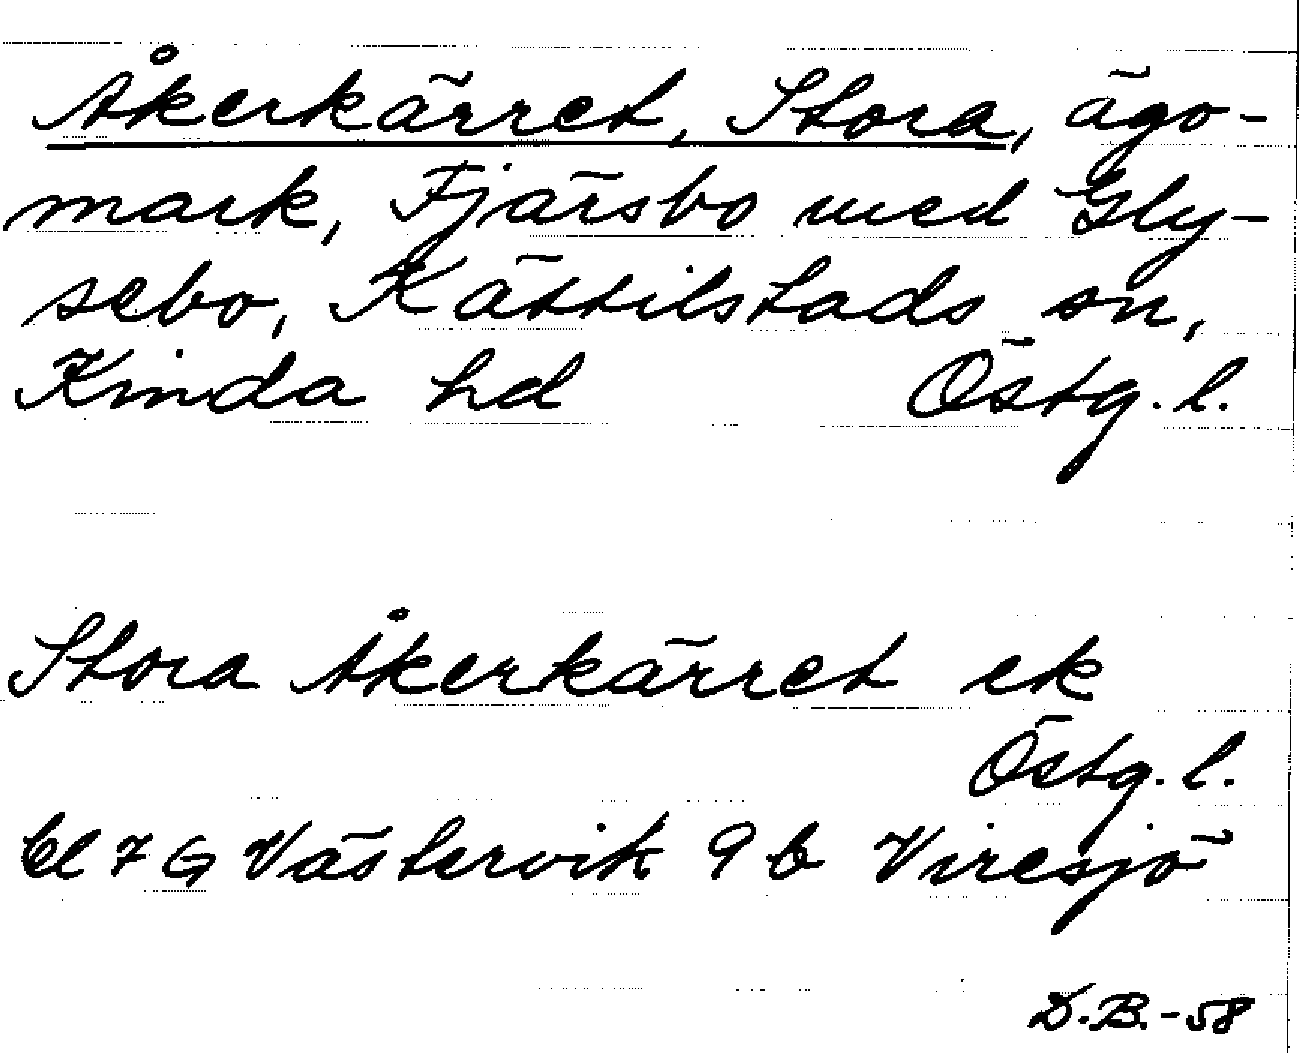 Åkerkärret, Stora, ägo-
mark, Fjärsbo med Gly-
sebo, Kättilstads sn,
Kinda hd Östg. l.
Stora Åkerkärret ek
Östg. l.
bl 7 G Västervik 9 b Viresjö
D.B.-58